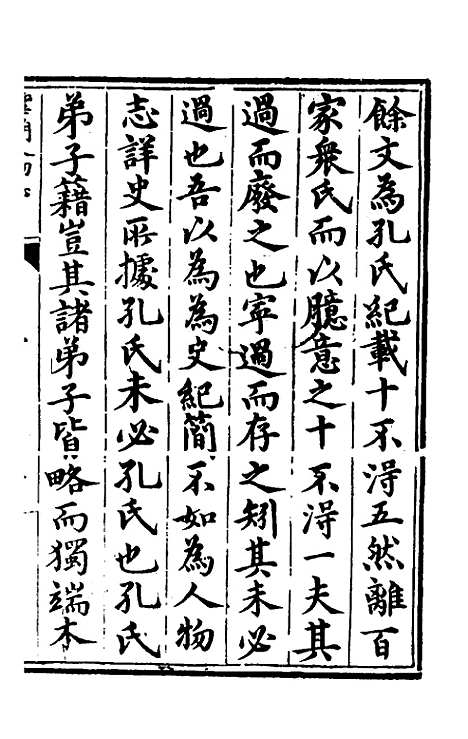 餘文為孔氏紀載十不得五然離百
家衆氏而以臆意之十不得一夫其
過而廢之也寧過而存之矧其未必
過也吾以為為史紀簡不如為人物
志詳史所據孔氏未必孔氏也孔氏
弟子籍豈其諸弟子皆略而獨端木